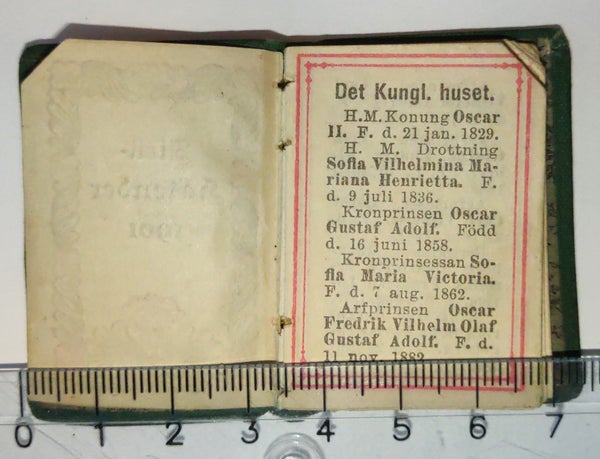 Det Kungl. huset.
H.M. Konung Oscar
II. F. d. 21 jan. 1829.
H. M. Drottning
Sofia Vilhelmina Ma-
riana Henrietta. F.
d. 9 juli 1836.
Kronprinsen Oscar
Gustaf Adolf. Född
d. 16 juni 1858.
Kronprinsessan So-
fia Maria Victoria.
F. d. 7 aug. 1862.
Arfprinsen Oscar
Fredrik Vilhelm Olaf
Gustaf Adolf. F. d.
11 nov. 1882
0 1 2 3 4 5 6 7